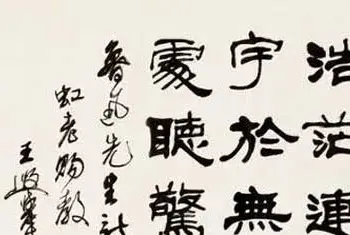 浩茫連
宇於無
處聽驚
魯迅先生詩
虹老賜教
王遐舉